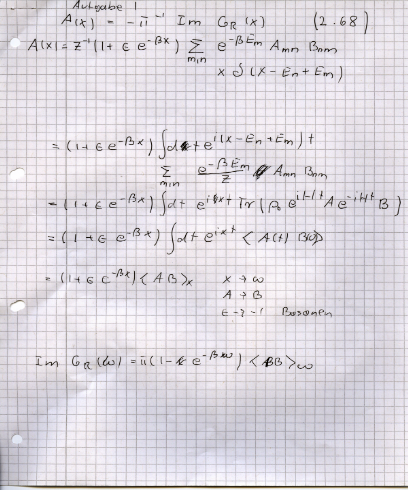 Aufgabe 1
A(x) = -π⁻¹ Im G_R(x) (2.68)
A(x) = Z⁻¹(1+ε e^{-βx}) Σ_{m,n} e^{-βEm} Amn Bnm
× δ(x-En+Em)
= (1+ε e^{-βx}) ∫dt e^{i(x-En+Em)t}
Σ_{m,n} e^{-βEm}/Z Amn Bnm
= (1+ε e^{-βx}) ∫dt e^{ixt} Tr(ρ₀ e^{iHt} A e^{-iHt} B)
= (1+ε e^{-βx}) ∫dt e^{ixt} <A(t) B(0)>
= (1+ε e^{-βx}) <AB>_x x → ω
A → B
ε → -1 Bosonen
Im G_R(ω) = π(1- e^{-βω}) <BB>_ω